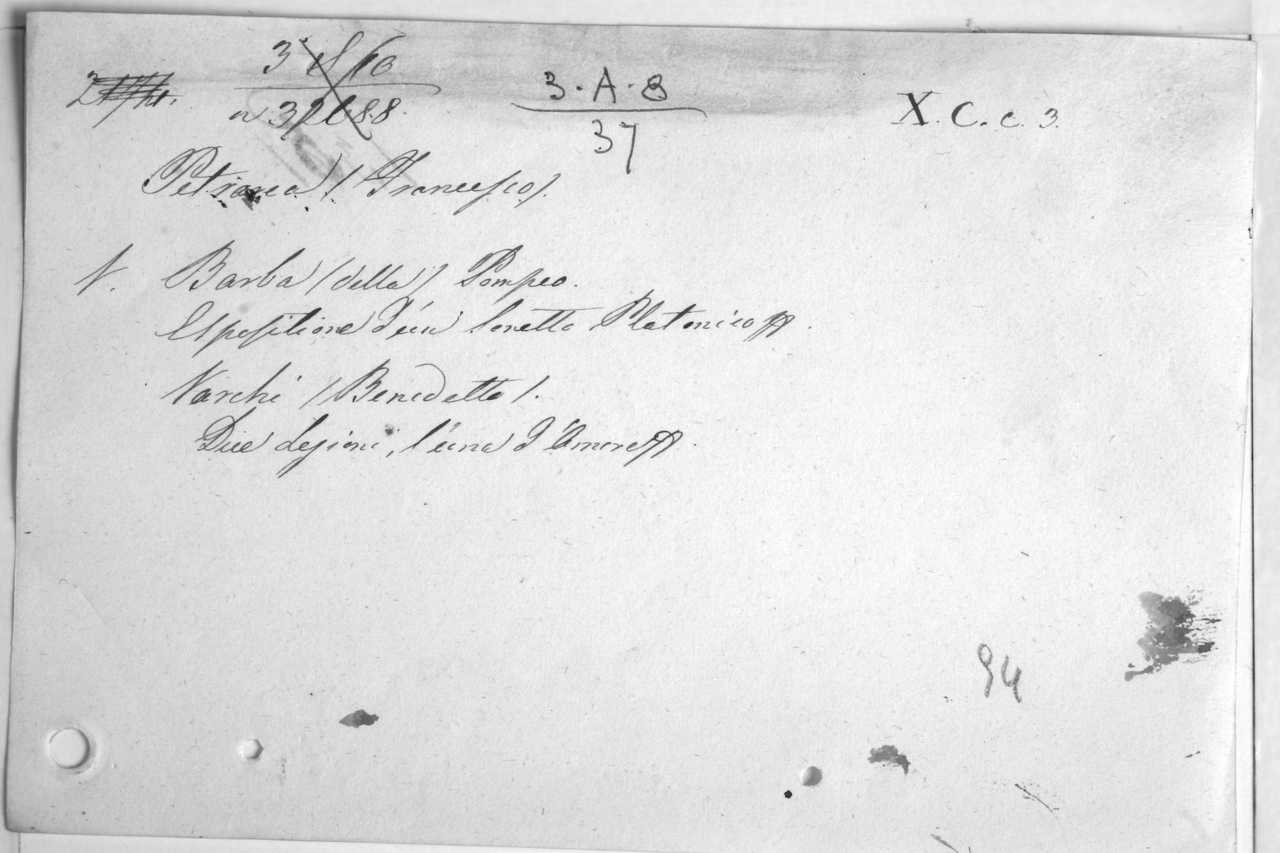 3·A·8
37
X. C. c. 3.
Petrarca / (Francesco).
V. Barba (della) Pompeo.
Espositione d'un Sonetto Platonico
Varchi (Benedetto).
Due Lezioni, l'una d'Amore
94